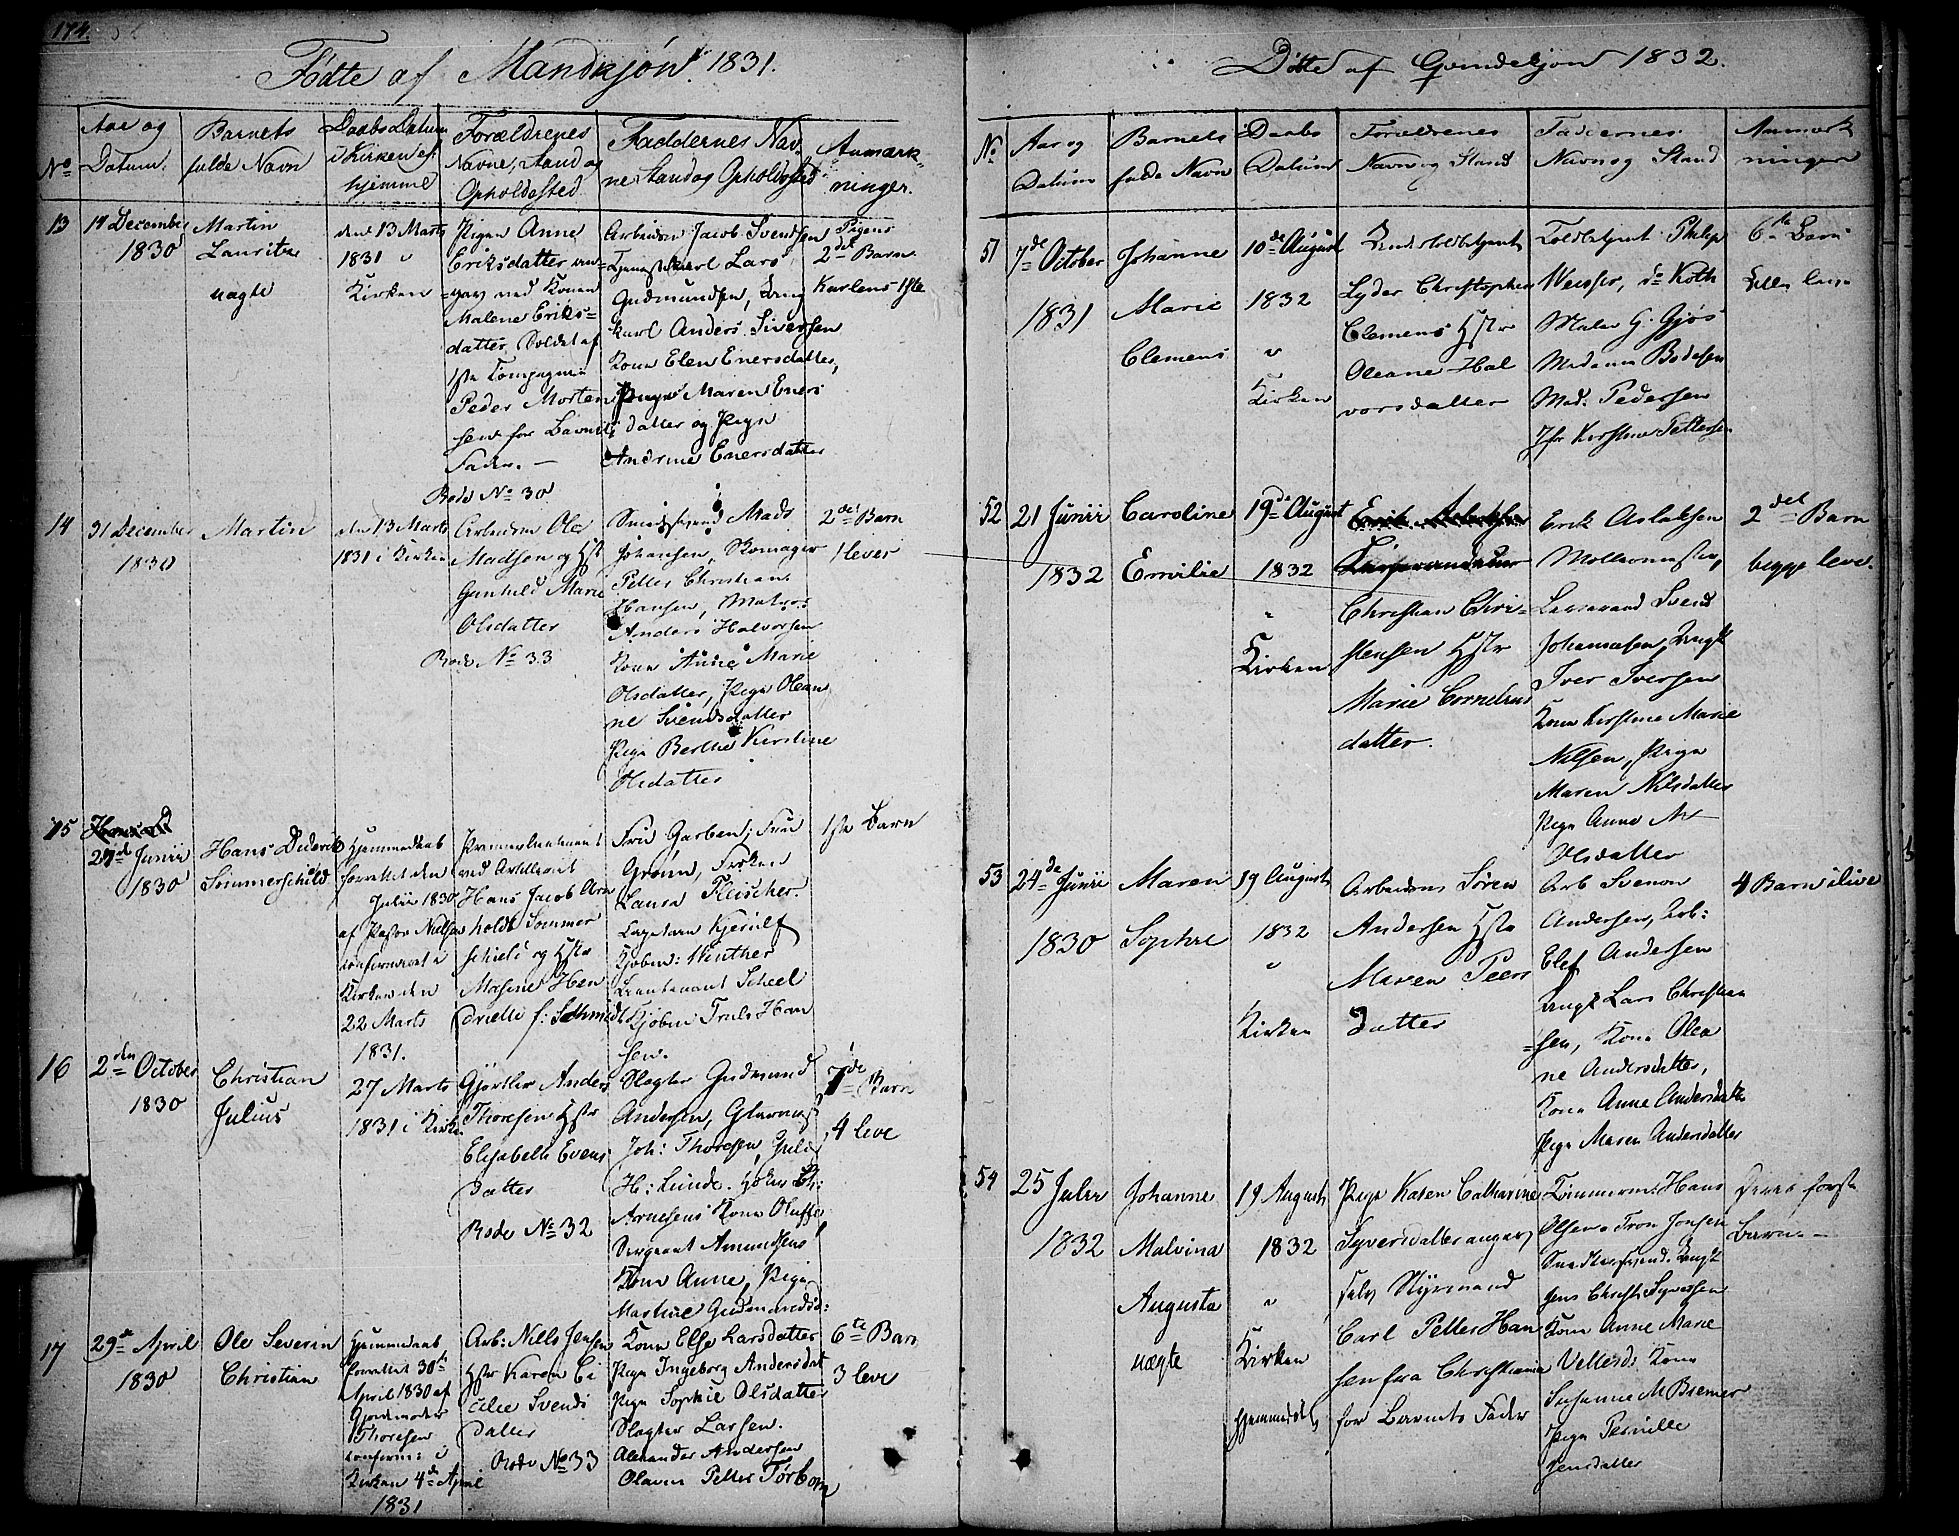 174.
Födte af Mandkjön 1831.
No
Aar og
Datum.
Barnets
fulde Navn
Daabs Datum
i Kirken el
hjemme
Forældrenes
Navne, Stand og
Opholdssted
Faddernes Nav
ne Stand og Opholdssted
Anmærk-
ninger.
13
14 December
1830
Martin
Lauritz
uægte
den 13 Marts
1831 i
Kirken
Pigen Anne
Eriksdatter
ved Konen
Malene Eriks=
datter, Soldat af
1ste Compagnie
Peder Morten
sen for Barnets
Fader. —
Rode No 30
Arbeidsm Jacob Svendsen
Tjenestekarl Lars
Gudmundsen, Ung
karl Anders Siversen
Kone Elen Enersdatter,
Pige Maren Eners
datter og Pige
Andrine Enersdatter
Pigens
2det Barn
Karlens 1ste
14
31 December
1830
Martin
den 13 Marts
1831 i Kirken
Arbeidsm Ole
Madsen og Hst
Gunhild Marie
Olsdatter
Rode No 33
Smedsvend Mads
Johansen, Skomager
Petter Christian
Hansen, Matros
Anders Halvorsen
Kone Anne Marie
Olsdatter, Pige Olean
ne Svendsdatter
Pige Berthe Kirstine
Olsdatter
2det Barn
1 lever
15
27de Junii
1830
Hans Diderik
Sommerschild
Hjemmedaab
forrettet den
Julii 1830
af Pastor Nielsen
confirmeret i
Kirken den
22 Marts
1831.
Premierlieutenant
ved Artilleriet
Hans Jacob Arn
holdt Sommer
schield og Hst
Masine Hen
driette f: Schmidt
Fru Garben, Fru
Grønn, Frøken
Laura Fleischer.
Capitain Kjerulf
Kjøbm: Winther
Lieutenant Scheel
Kjøbm Truls Han
sen.
1ste Barn
16
2den October
1830
Christian
Julius
27 Marts
1831 i Kirken
Gjørtler Anders
Thoresen Hst
Elisabeth Evens
datter
Rode No 32
Slagter Gudmund
Andersen, Glarmest
Joh: Thoresen, Guld
H: Lunde. Høker Ch:
Arnesens Kone Oluffe
Sergeant Amundsens
Kone Anne, Pige
Marthe Gudmundsd:
7de Barn
4 leve
17
29de April
1830
Ole Severin
Christian
Hjemmedaab
forrettet 30te
April 1830 af
Gjordemoder
Thoresen
confirm: i
Kirken 4de April
1831
Arb: Niels Jensen
Hst Karen Ce
cilie Svends
datter
Rode No 33
Kone Else Larsdatter
Pige Ingeborg Andersdat
Pige Sophie Olsdatter
Slagter Larsen.
Alexander Andersen
Olaves Petter Torbörn
6te Barn
3 leve
Dötte af Qvindekjön 1832.
No
Aar og
Datum
Barnets
fulde Navn
Daabs
Datum
Forældrenes
Navn og Stand
Faddernes
Navn og Stand
Anmærk
ninger
51
7de October
1831
Johanne
Marie
Clemens
10de August
1832
i
Kirken
Undertoldbetjent
Lyder Christopher
Clemens Hst
Oleane Hal
vorsdatter
Toldbetjent Philip
Weisser, do Koth
Maler G. Gjös
Madame Bodesen
Mad. Pedersen
Jfr Kirstine Pettersen
6te Barn
52
21 Junii
1832
Caroline
Emilie
19de August
1832
i
Kirken
Christian Chri-
stensen Hst
Marie Cornelius
datter.
Erik Aslaksen
Møllermester,
Svend
Johannesen, Ungk
Iver Iversen
Kone Kirstine Marie
Nilsen, Pige
Maren Nilsdatter
Pige Anne M
Olsdatter
2det Barn
begge leve.
53
24de Junii
1830
Maren
Sophie
19 August
1832
i
Kirken
Arbeidsm Sören
Andersen Hst
Maren Peers
datter
Arb Svenon
Andersen,
Elef Andersen
Ungk Lars Christian
sen, Kone Olea
ne Andersdatter,
Kone Anne Andersdatter
Pige Maren Andersdatter
4 Barn i live
54
25 Julii
1832
Johanne
Malvina
Augusta
uægte
19 August
1832
i
Kirken
hjemmedøbt
Pige Karen Catharine
Syversdatter angav
selv Styrmand
Carl Petter Han
sen fra Christiania
for Barnets Fader
Tømmerm: Hans
Olsen, Tron Jensen
Snedkersvend. Ungk
Jens Christ: Syversen
Kone Anne Marie
Kone
Susanne M Bremer
Pige Pernille
Jensdatter
første
Barn. —